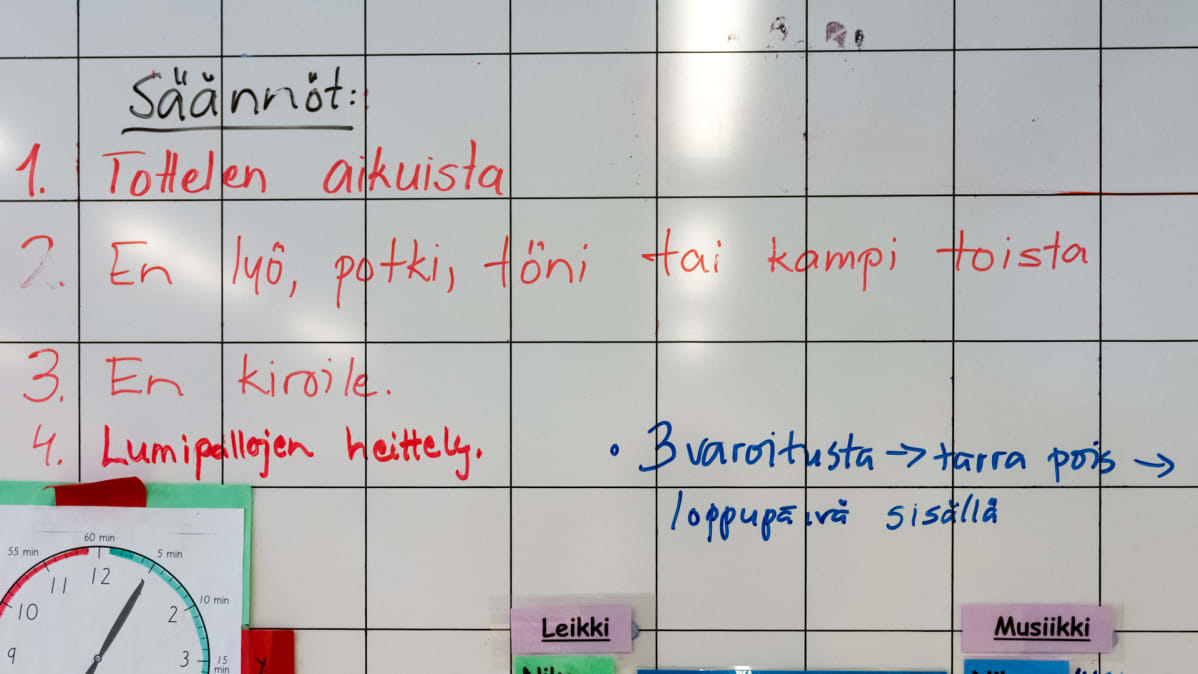 Säännöt:
1. Tottelen aikuista
2. En lyö, potki, töni tai kampi toista
3. En kiroile.
4. Lumipallojen heittely.
• 3 varoitusta → tarra pois →
loppupäivä sisällä
55 min
60 min
5 min
10 min
15 min
9
10
11
12
2
3
Leikki
Musiikki